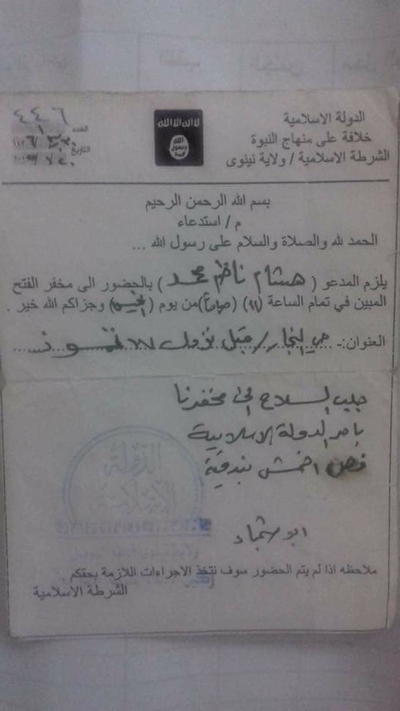 الدولة الاسلامية
خلافة على منهاج النبوة
الشرطة الاسلامية / ولاية نينوى
لا اله الا الله
الله
رسول
محمد
العدد ٤٤٦
التاريخ
بسم الله الرحمن الرحيم
م / استدعاء
الحمد لله والصلاة والسلام على رسول الله ...
يلزم المدعو ( هشام ناظم محمد ) بالحضور الى مخفر الفتح
المبين في تمام الساعة (١١) (صباحاً) من يوم (الخميس) وجزاكم الله خير .
العنوان:- حي النجار / قبل نزول
جلب السلاح الى مخفرنا
بامر الدولة الاسلامية
بندقية
ابو
الدولة
الاسلامية
ملاحظه اذا لم يتم الحضور سوف نتخذ الاجراءات اللازمة بحقكم.
الشرطة الاسلامية